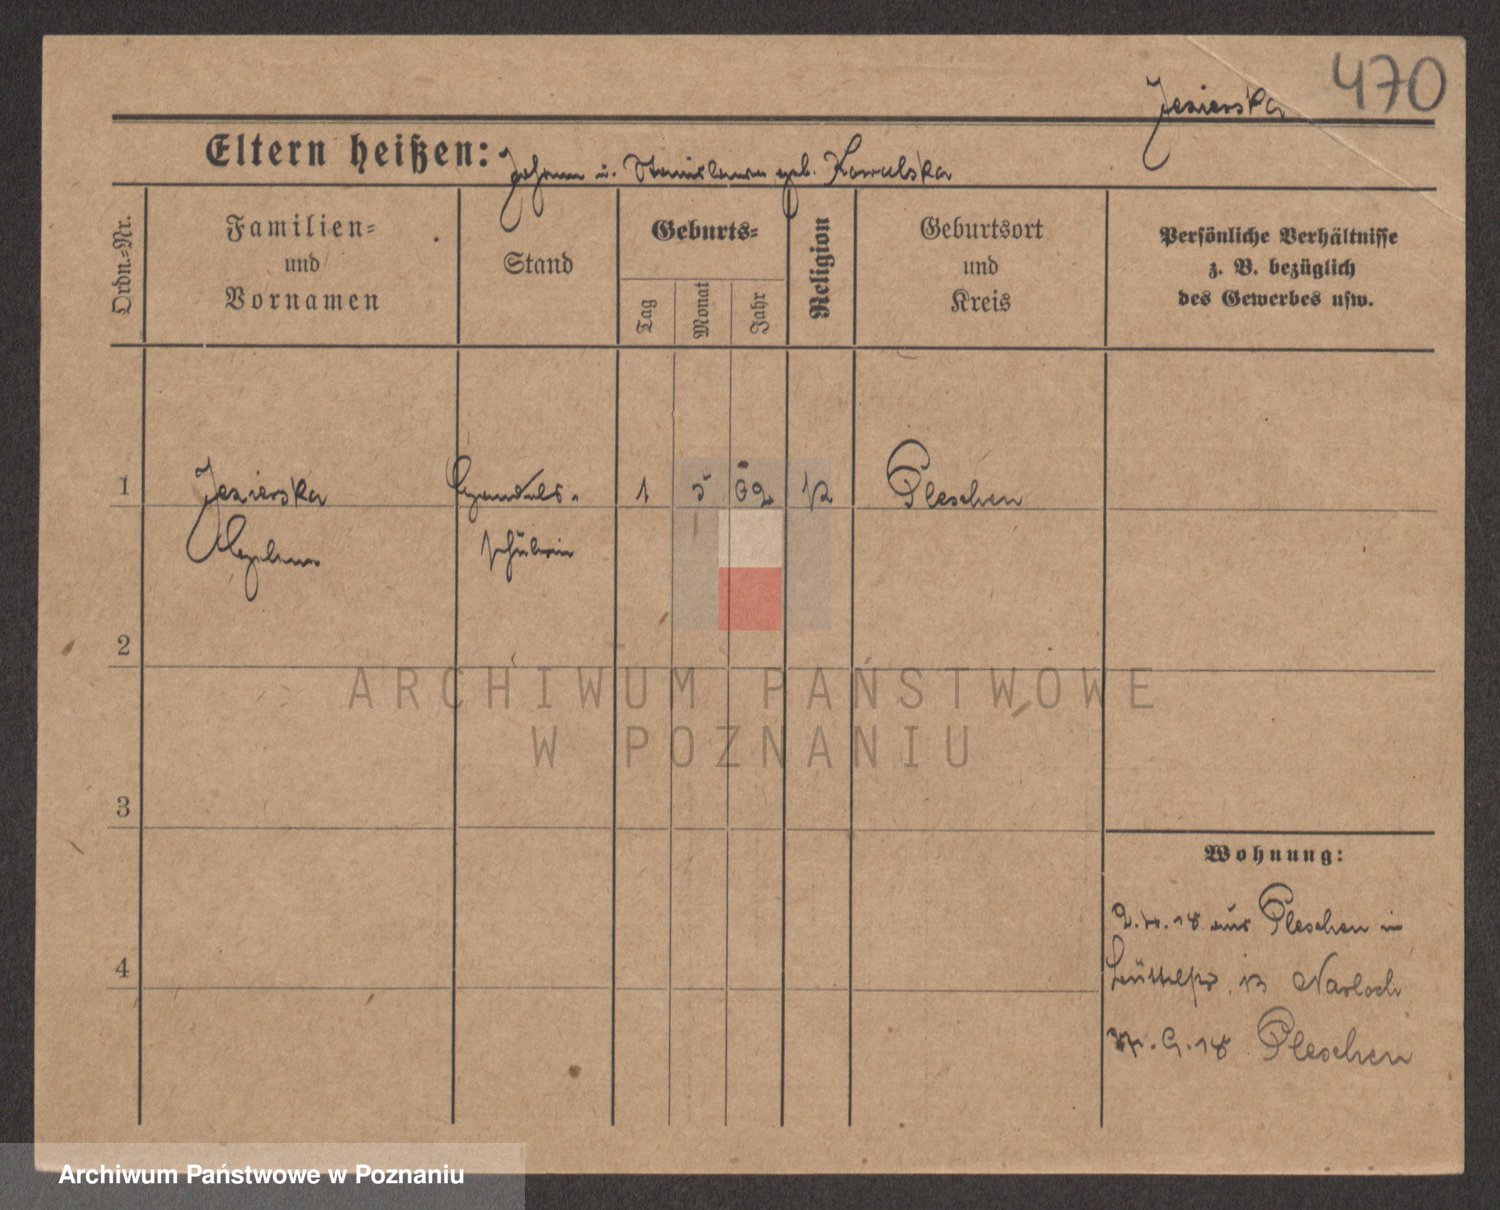 470
Jezierska
Eltern heißen: Johann u. Stanislawa geb. Kowalska
Ordn.-Nr.
Familien-
und
Vornamen
Stand
Geburts-
Tag
Monat
Jahr
Religion
Geburtsort
und
Kreis
Persönliche Verhältnisse
z. B. bezüglich
des Gewerbes usw.
1 Jezierska Handels- 1 5 02 k Pleschen
schülerin
2
ARCHIWUM PAŃSTWOWE
W POZNANIU
3
Wohnung:
18 aus Pleschen in
4
13 Narloch
18 Pleschen
Archiwum Państwowe w Poznaniu